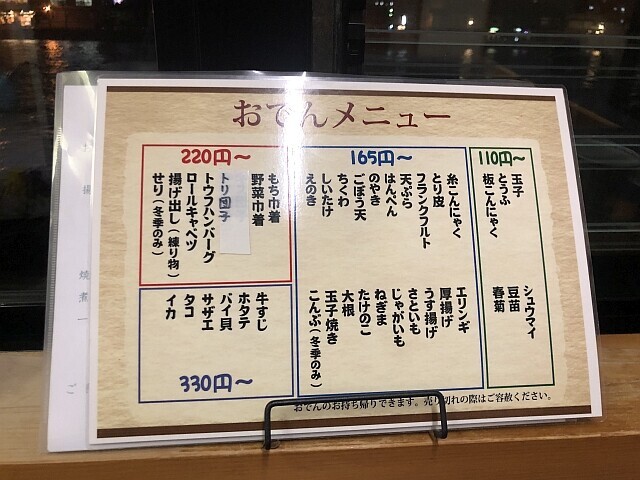 おでんメニュー
110円～
玉子
とうふ
板こんにゃく
シュウマイ
豆苗
春菊
165円～
糸こんにゃく
とり皮
フランクフルト
天ぷら
はんぺん
のやき
ごぼう天
ちくわ
しいたけ
えのき
エリンギ
厚揚げ
うす揚げ
さといも
じゃがいも
ねぎま
たけのこ
大根
玉子焼き
こんぶ(冬季のみ)
220円～
もち巾着
野菜巾着
トリ団子
トウフハンバーグ
ロールキャベツ
揚げ出し(練り物)
せり(冬季のみ)
牛すじ
ホタテ
バイ貝
サザエ
タコ
イカ
330円～
おでんのお持ち帰りできます。売り切れの際はご容赦ください。
焼
煮
一
ご